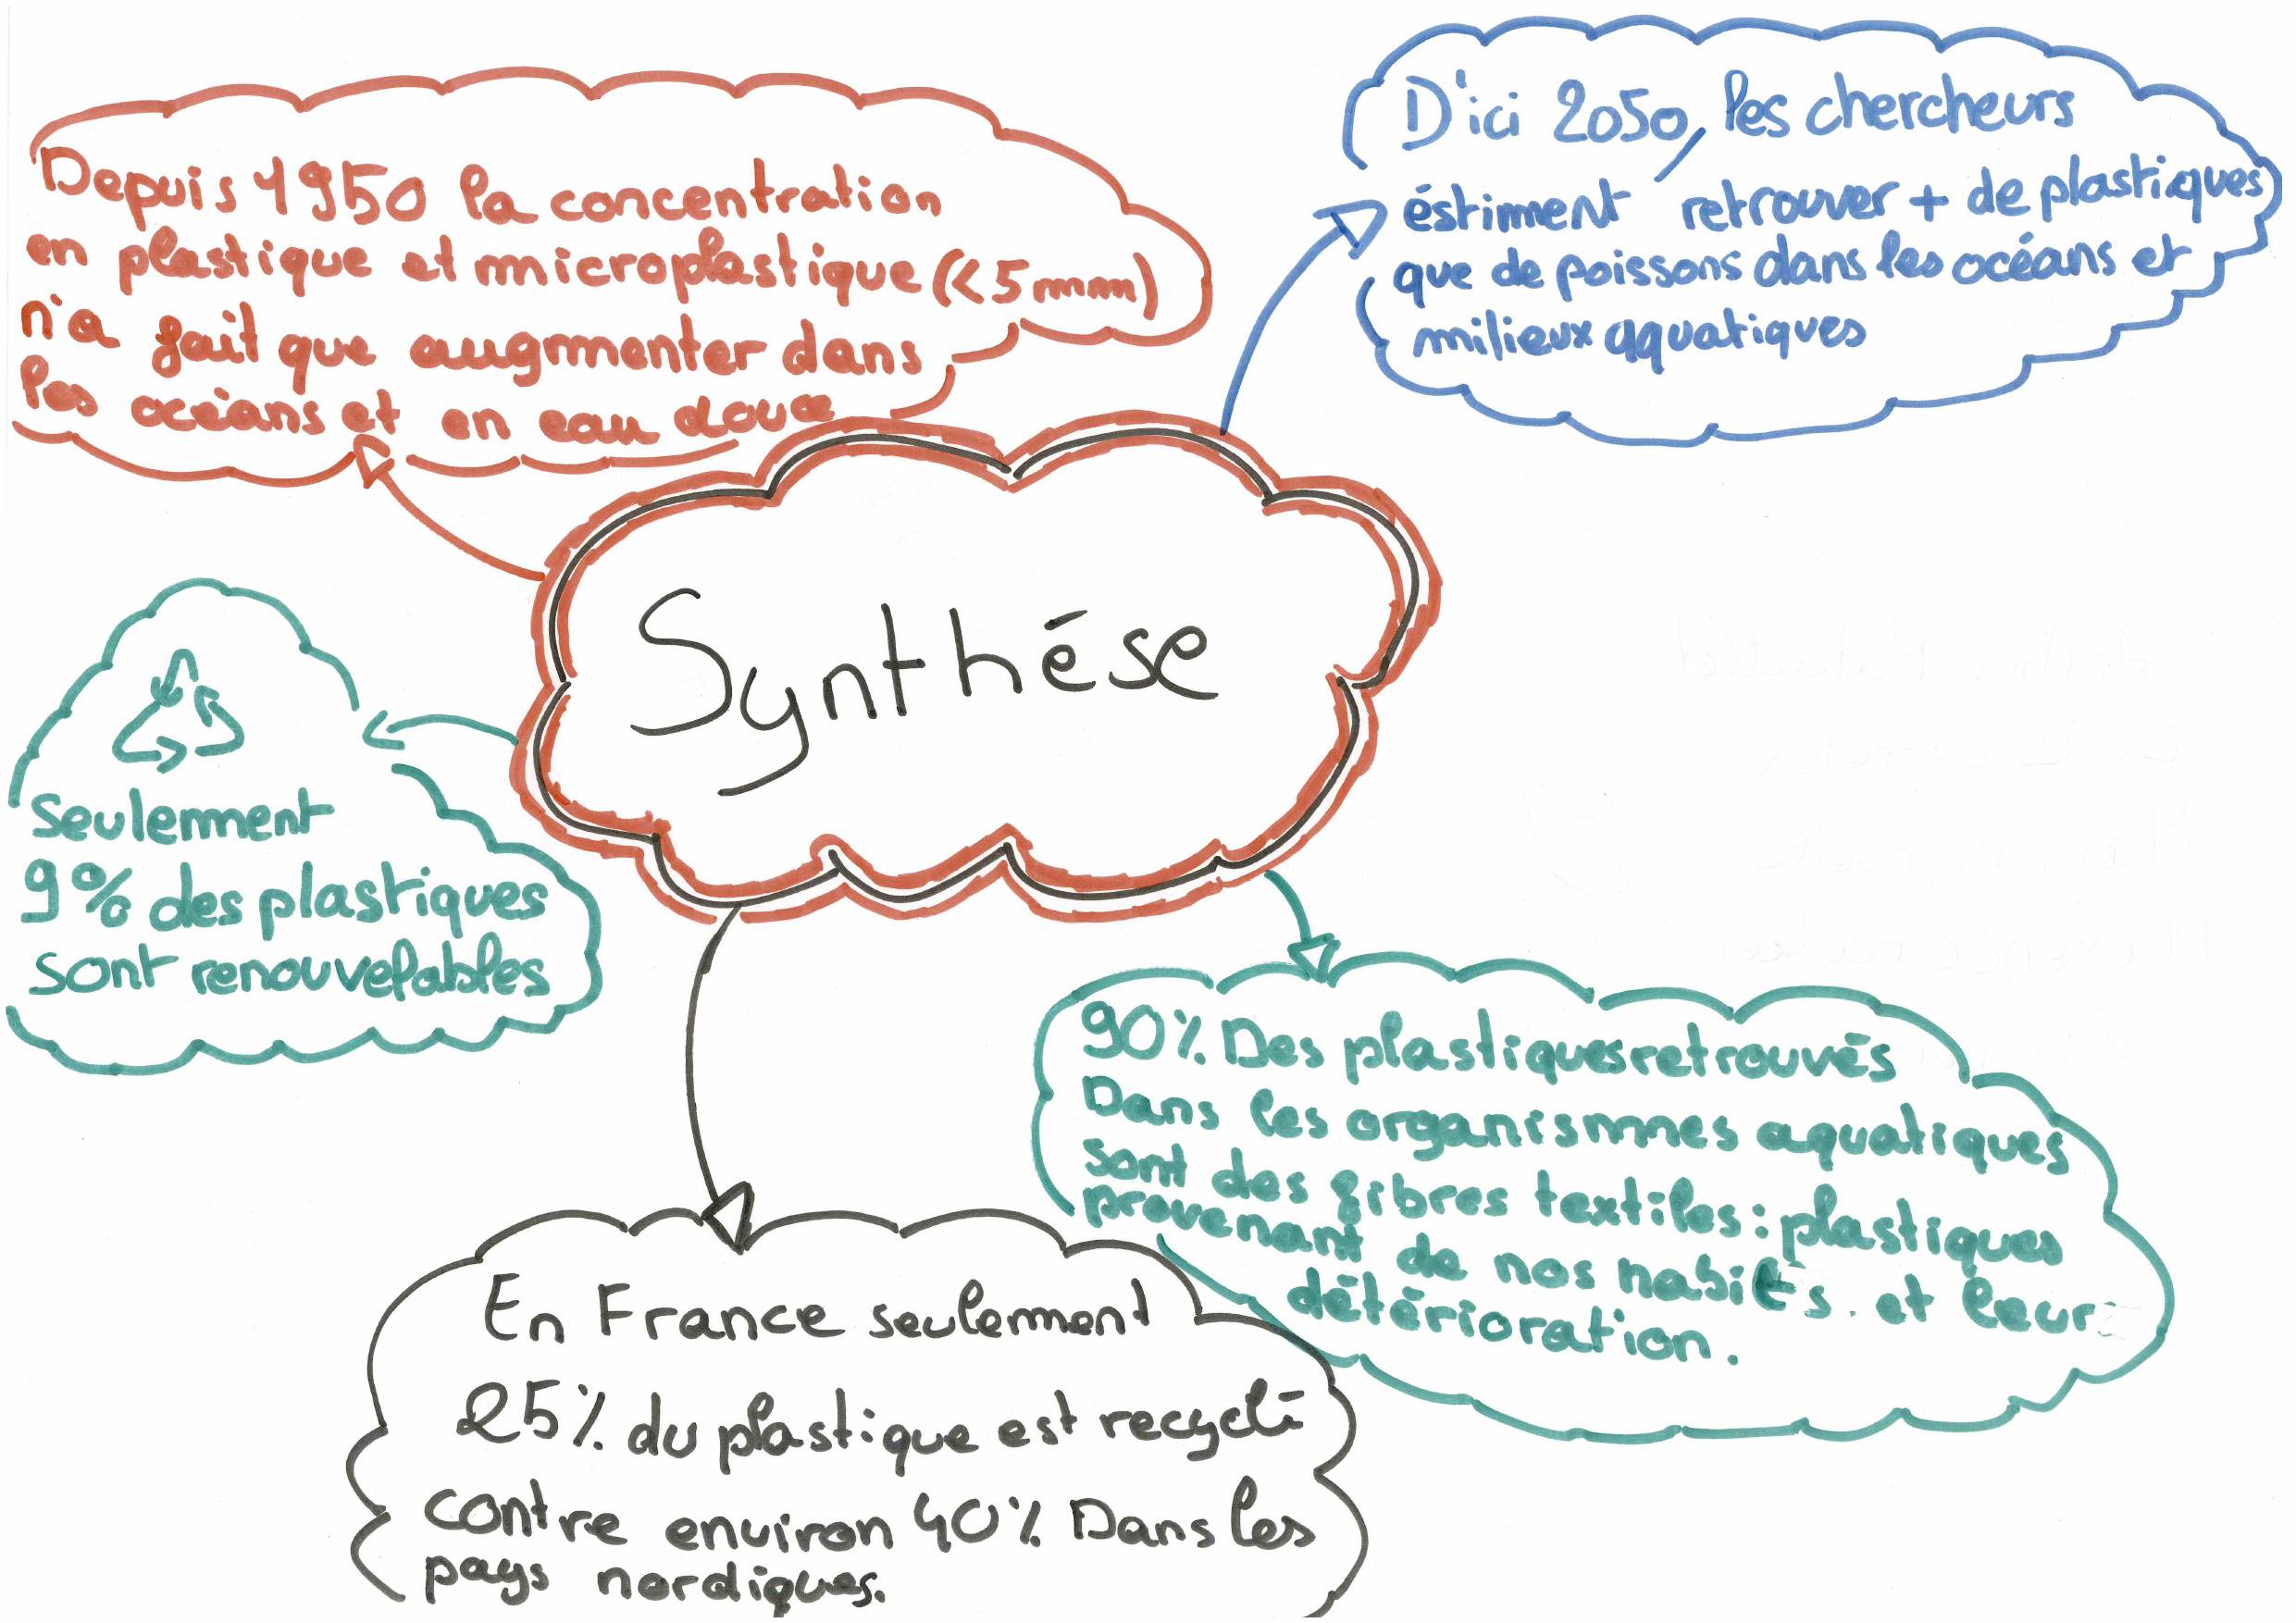 Depuis 1950 la concentration
en plastique et microplastique (<5mm)
n'a fait que augmenter dans
les océans et en eau douce
D'ici 2050, les chercheurs
éstiment retrouver + de plastiques
que de poissons dans les océans et
milieux aquatiques
Synthése
seulement
9% des plastiques
sont renouvelables
90% Des plastiques retrouvés
Dans les organismes aquatiques
sont des fibres textiles : plastiques
provenant de nos habits. et leur
détérioration.
En France seulement
25% du plastique est recyclé
contre environ 40% Dans les
pays nordiques.